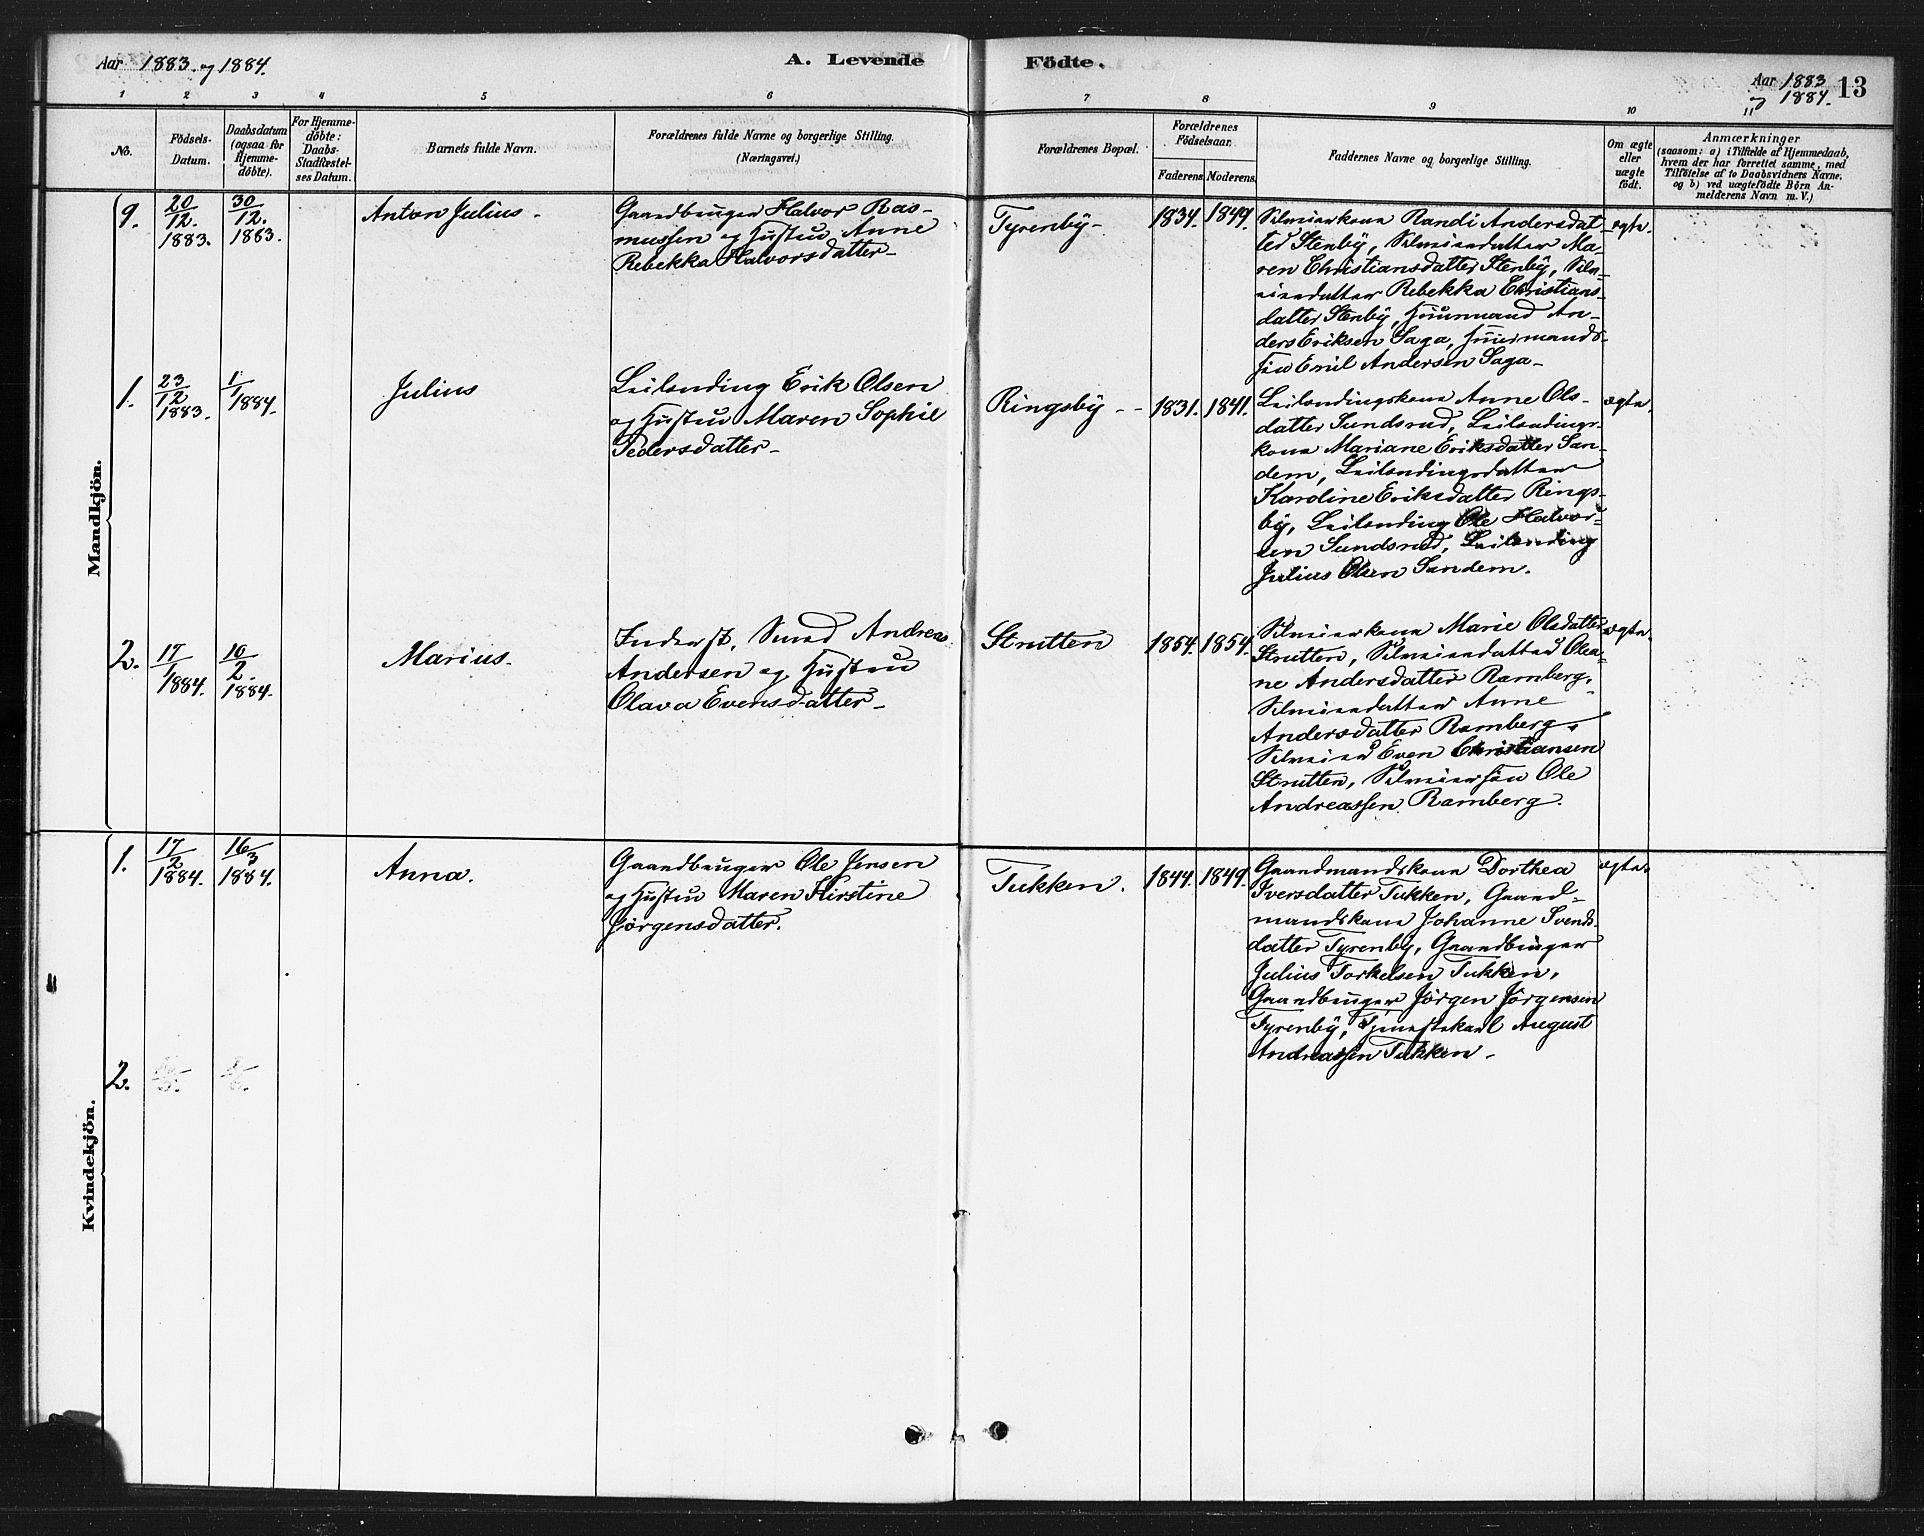 Aar 1883 og 1884.
A. Levende Födte.
Aar 1883 og 1884.
13
1 2 3 4 5 6 7 8 9 10 11
No.
Födsels-
Datum.
Daabsdatum
(ogsaa for
Hjemme-
döbte).
For Hjemme-
döbte:
Daabs-
Stadfæstel-
ses Datum.
Barnets fulde Navn.
Forældrenes fulde Navne og borgerlige Stilling.
(Næringsvei.)
Forældrenes Bopæl.
Forældrenes
Födselsaar.
Faderens. Moderens.
Faddernes Navne og borgerlige Stilling.
Om ægte
eller
uægte
födt.
Anmærkninger
(saasom: a) i Tilfælde af Hjemmedaab,
hvem der har forrettet samme, med
Tilföielse af to Daabsvidners Navne;
og b) ved uægtefödte Börn An-
melderens Navn m. V.)
Mandkjön.
9.
20/12.
1883.
30/12.
1883.
Anton Julius -
Gaardbruger Halvor Ras-
mussen og Hustru Anne
Rebekka Halvorsdatter -
Tyrenby -
1834. 1849.
Selveierkone Randi Andersdat-
ter Stenby, Selveierdatter Ma-
ren Christiansdatter Stenby, Selv-
eierdatter Rebekka Christians-
datter Stenby, Huusmand An-
ders Eriksen Saga, Huusmands-
søn Emil Andersen Saga -
ægte.
1.
23/12
1883.
1/1
1884.
Julius
Leilending Erik Olsen
og Hustru Maren Sophie
Pedersdatter -
Ringsby - -
1831. 1841.
Leilendingskone Anne Ols-
datter Sundsrud, Leilendings-
kone Mariane Eriksdatter San-
dem, Leilendingsdatter
Karoline Eriksdatter Rings-
by, Leilending Ole Halvor-
sen Sundsrud, Leilending
Julius Olsen Sandem.
ægte.
2.
17/1
1884.
10/2.
1884.
Marius.
Inderst, Smed Andreas
Andersen og Hustru
Olava Evensdatter -
Strutten
1854. 1854.
Selveierkone Marie Olsdatter
Strutten, Selveierdatter Olea-
ne Andersdatter Ramberg,
Selveierdatter Anne
Andersdatter Ramberg,
Selveier Even Christiansen
Strutten, Selveiersøn Ole
Andreassen Ramberg.
ægte.
Kvindekjön.
1.
17/2
1884.
16/3
1884.
Anna.
Gaardbruger Ole Jensen
og Hustru Maren Kirstine
Jörgensdatter.
Tukken.
1844. 1849.
Gaardmandskone Dorthea
Iversdatter Tukken, Gaard-
mandskone Johanne Svends-
datter Tyrenby, Gaardbruger
Julius Torkelsen Tukken,
Gaardbruger Jörgen Jörgensen
Tyrenby, Tjenestekarl August
Andreassen Tukken -
ægte.
2.